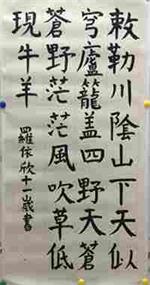 敕勒川陰山下天似
穹廬籠盖四野天蒼
蒼野茫茫風吹草低
現牛羊
羅依欣十一歲書